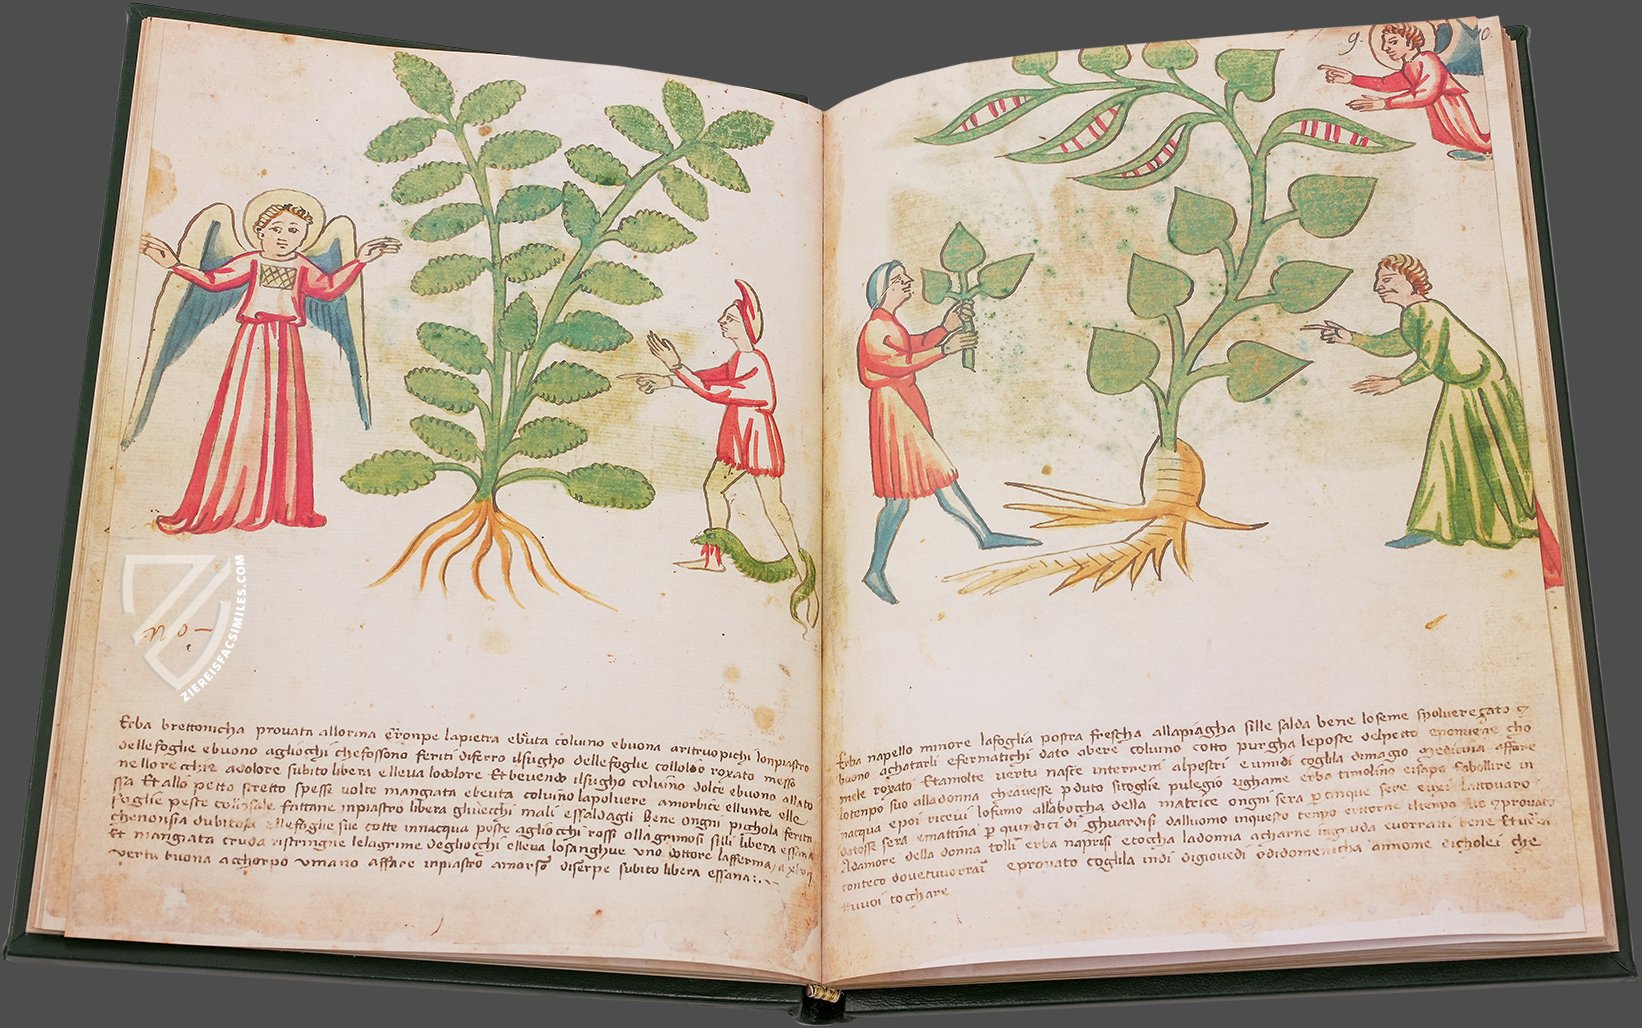 ZIEREISFACSIMILES.COM
no-
Erba brettonicha provata allorina eronpe lapietra ebeuta coluino ebuona aritruopichi lonpiastro
dellefoglie ebuono agliocchi chefossono feriti diferro ilsugho dellefoglie colloldo roxato messo
nellorecchie adolore subito libera elleva lodolore Et bevendo ilsugho coluino dolce ebuono allato
ssa Et allo petto stretto spesse volte mangiata ebeuta coluino lapoluere amorbice ellunte elle
foglie peste colsale fattane inpiastro libera ghuecchi mali essaldagli Bene ongni pichola ferita
chenonsia dubitosa ellefoglie sue cotte innacqua poste aglocchi rossi ollagrimosi silli libera essana
Et mangiata cruda ristringne lelagrime degliocchi elleva losanghue uno dottore lafferma
vertu buona acchorpo umano affare inpiastro amorso diserpe subito libera essana
9
Erba napello minore lafoglia posta frescha allapiagha sille salda bene loseme spolueregato
buono achatarli efermatichi dato abere coluino cotto purgha leposte delpetto
mele roxato Et amolte vertu nasce interreni alpestri e umidi coglila dimagio medicina affare
lotempo suo alladonna chenauesse pduto sitoglie pulegio righame erba timolino eisapo fabollire in
nacqua epoi ricevi lofumo allabogha della matrice ongni sera p cinque sere
datosse sera emattina p quindici di ghuardisi dalluomo inquesto tenpo
Adamore della donna tolli erba naprisi etocgha ladonna acharne ingnuda
conteco dovetuvorrai eprovato coglila indi digiovedi odidomenicha annome dicholei che
ttuvoi tocchare